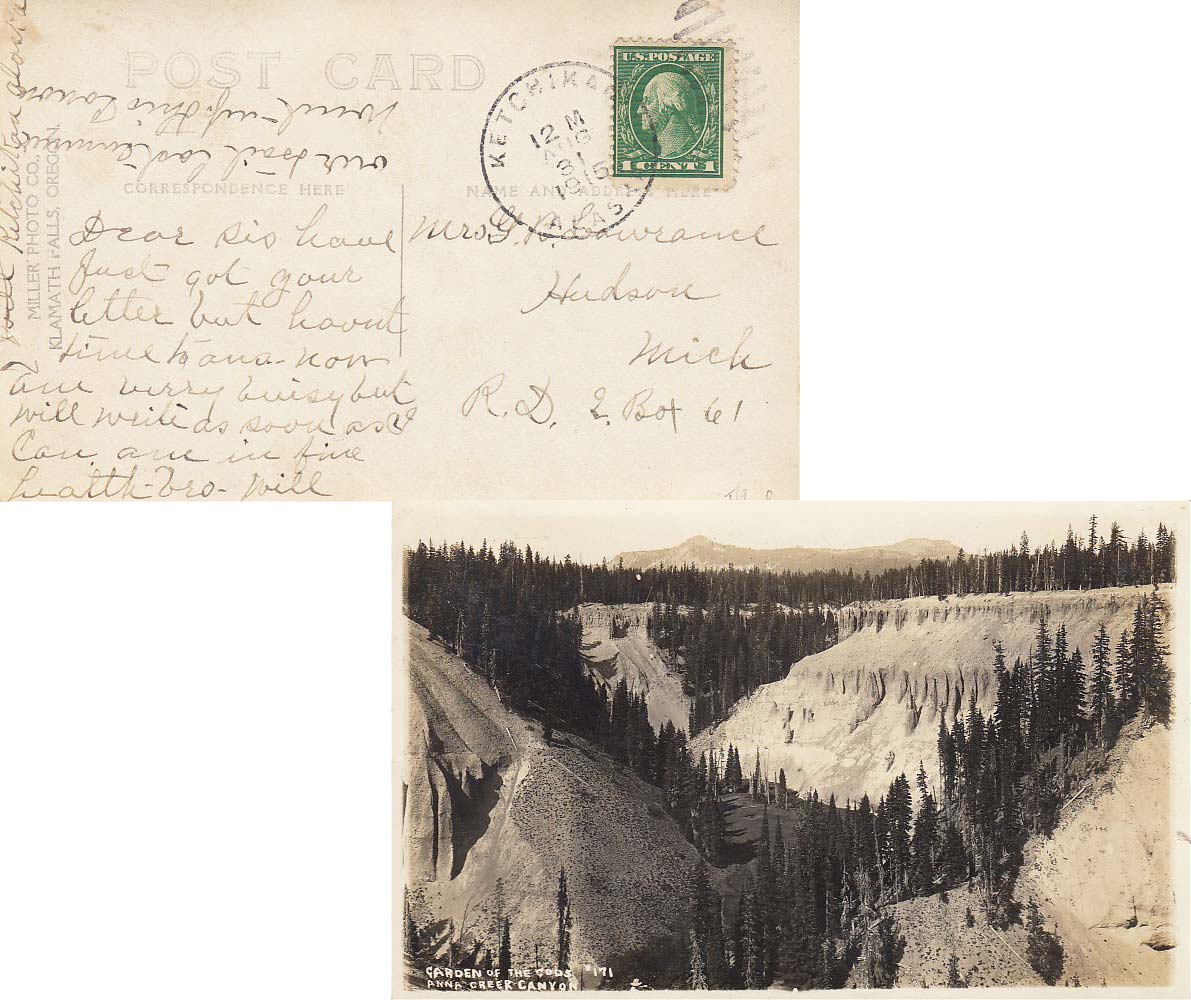 POST CARD
U.S. POSTAGE
1 CENT 1
KETCHIKAN
12 M
AUG
31
1915
ALASKA
CORRESPONDENCE HERE
NAME AND ADDRESS HERE
MILLER PHOTO CO.,
KLAMATH FALLS, OREGON.
Dear sis have
just got your
letter but havnt
time to ans- now
am verry buisy but
will write as soon as I
can am in fine
health- Bro- Will
Will Ketchikan Alaska
our trail last
went up this Canon
Mrs G. B. Lawrance
Hudson
Mich
R.D. 2. Box 61
GARDEN OF THE GODS #171
ANNA CREEK CANYON